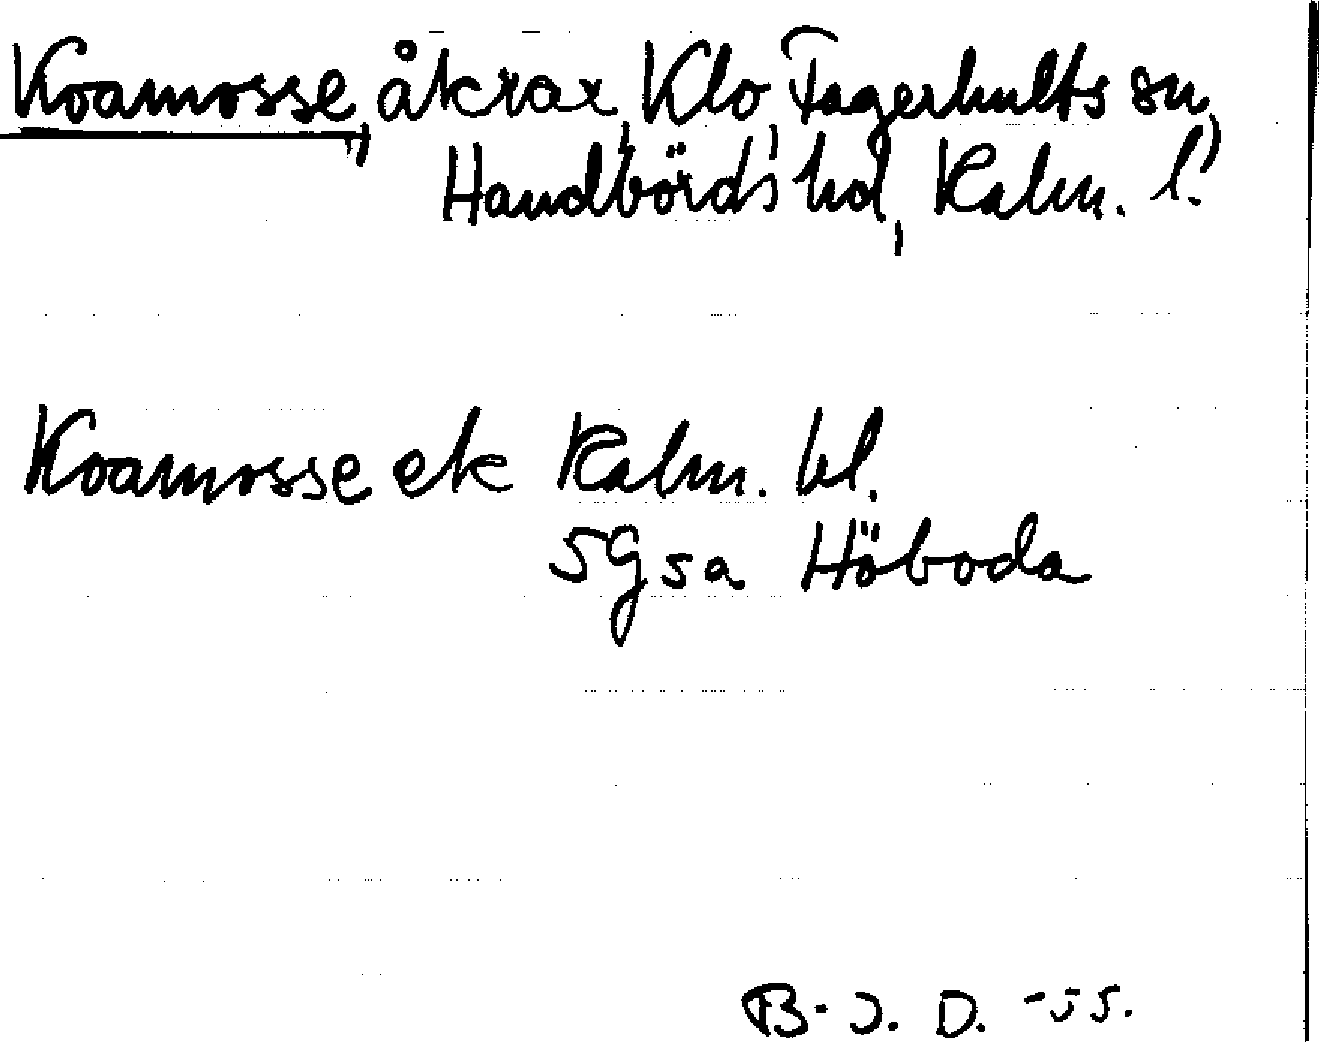 Koamosse, åkrar, Klo, Fagerhults sn,
Handbörds hd, Kalm. l.
Koamosse ek Kalm. bl.
5G5a Höboda
B. J. D. -55.